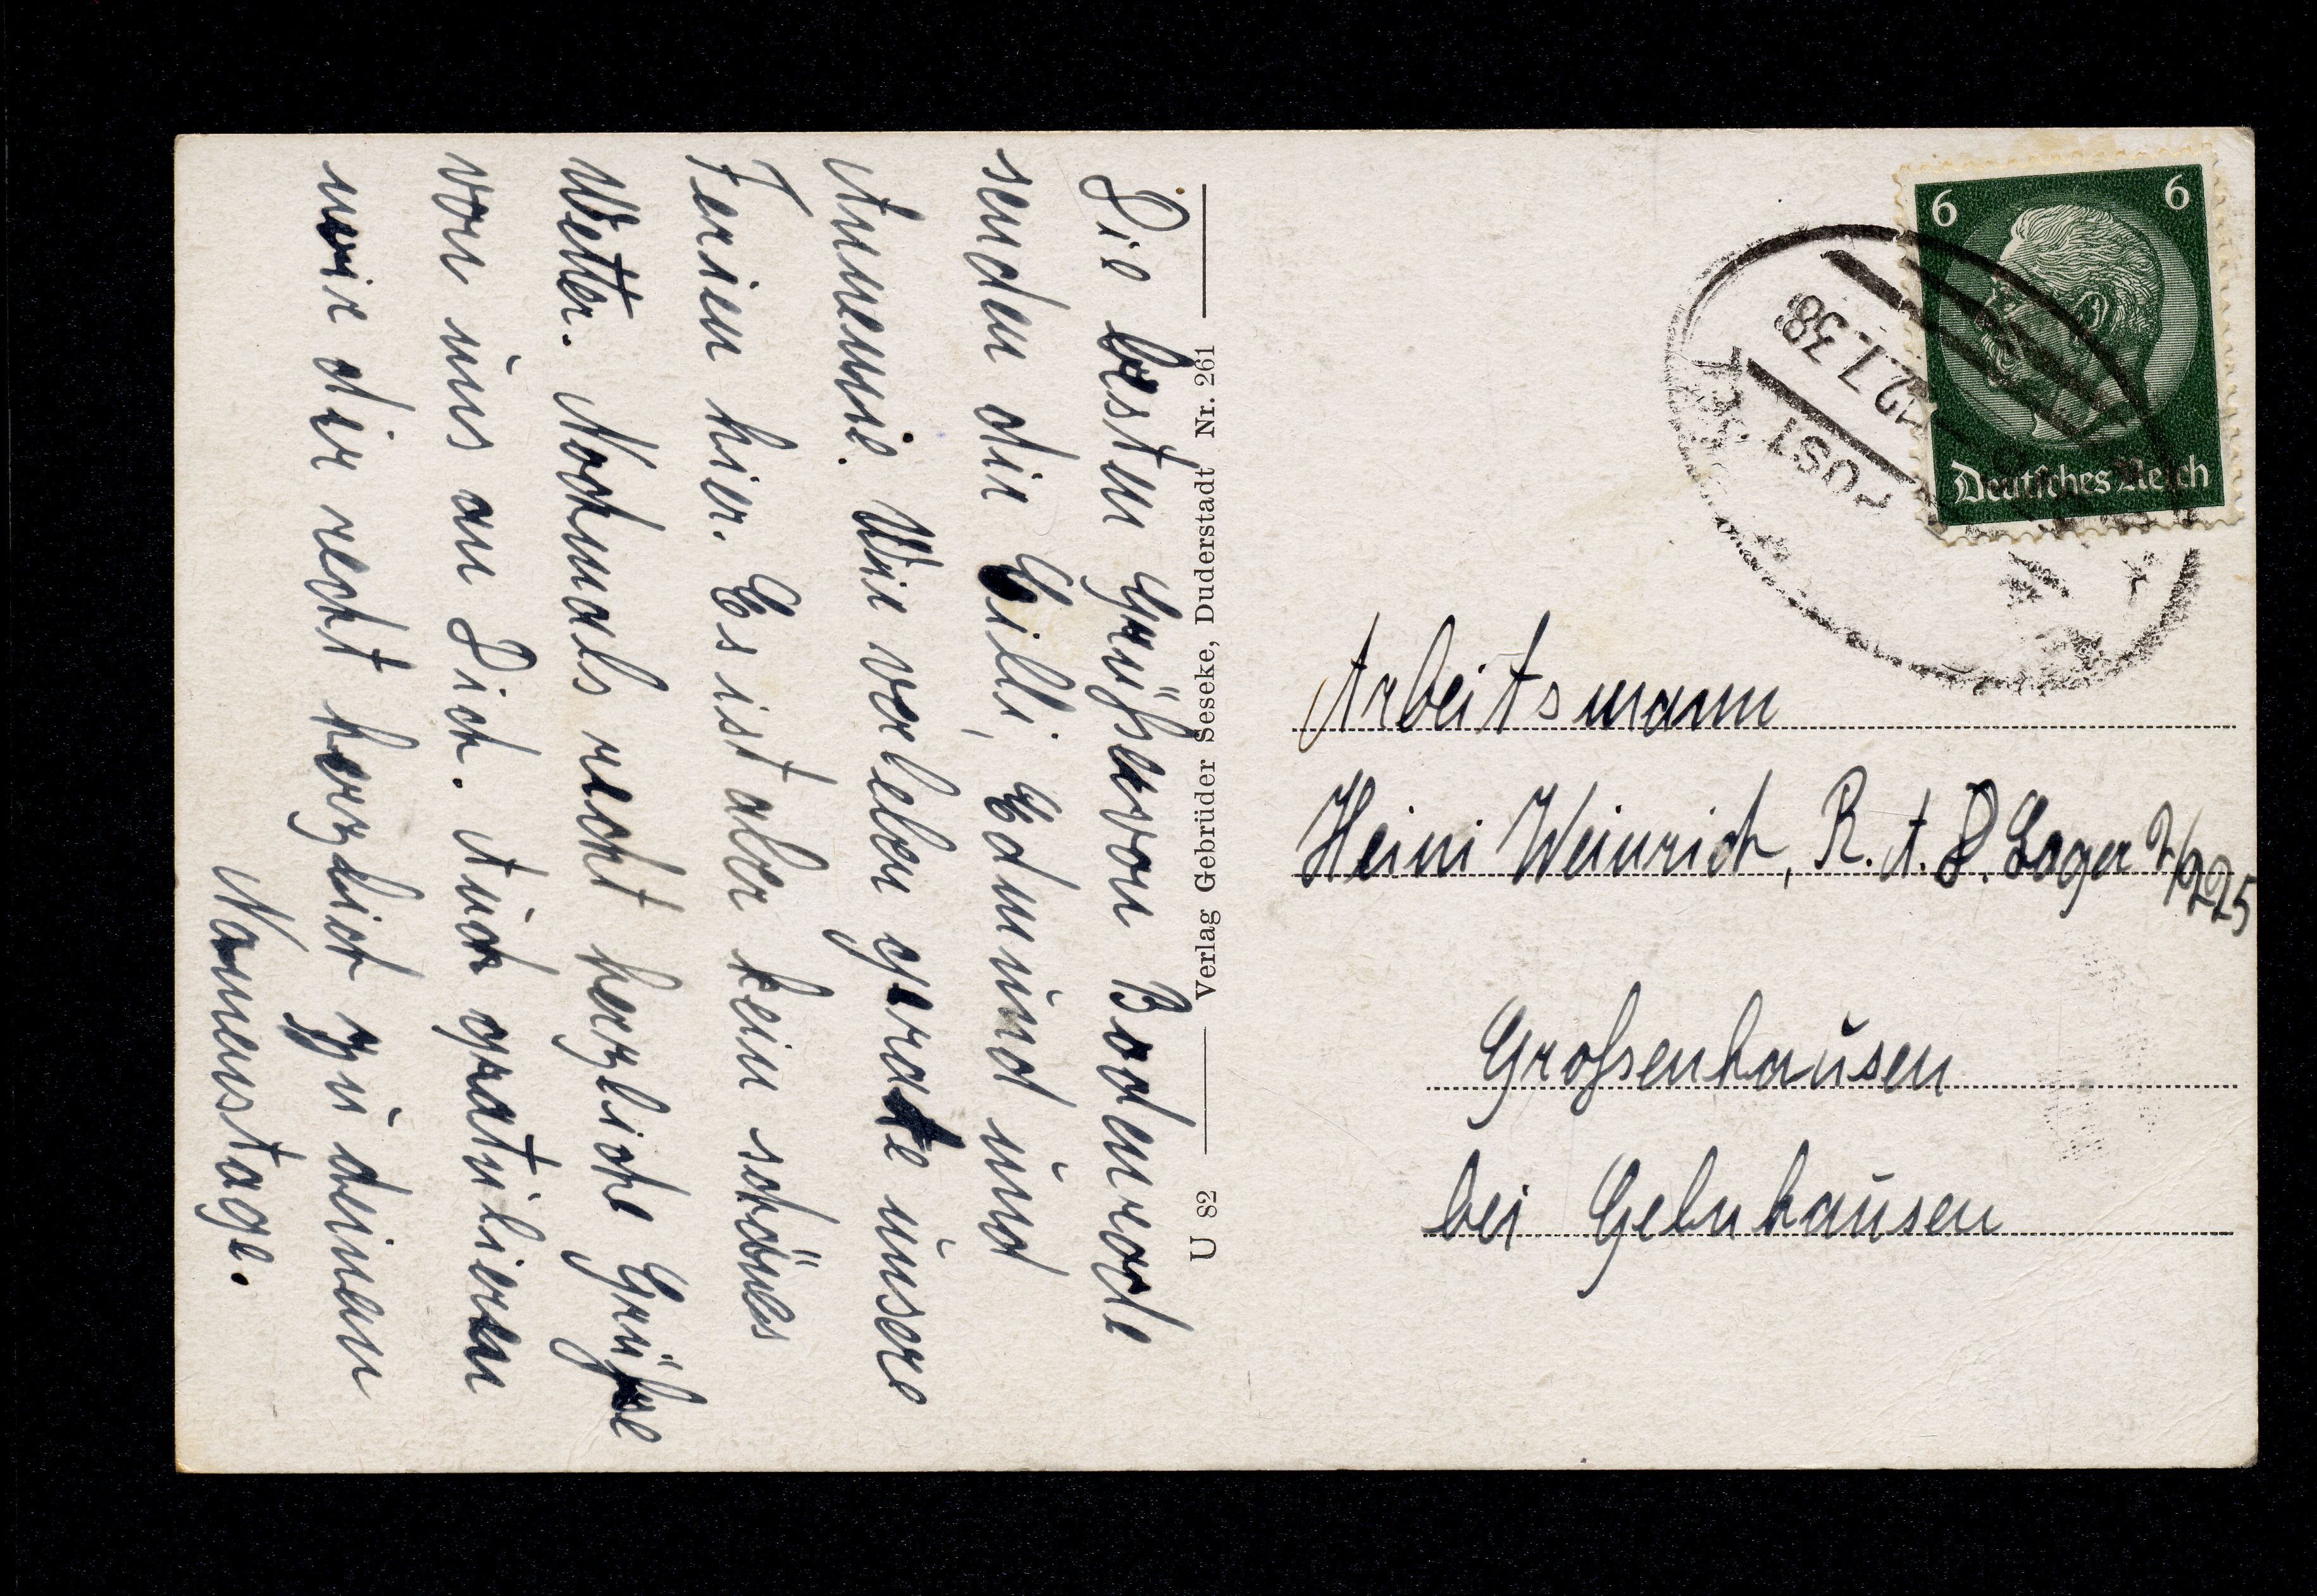 Die besten Grüße von Bodenrode
senden dir Cilli, Edmund und
Annemie. Wir verleben gerade unsere
Ferien hier. Es ist aber kein schönes
Wetter. Nochmals recht herzliche Grüße
von uns an Dich. Auch gratulieren
wir dir recht herzlich zu deinen
Namenstage.
U 82 Verlag Gebrüder Seseke, Duderstadt Nr. 261
6 6
Deutsches Reich
12.7.38
POST
Arbeitsmann
Heini Weinrich, R.A.D. Lager 2/225
Großenhausen
bei Gelnhausen